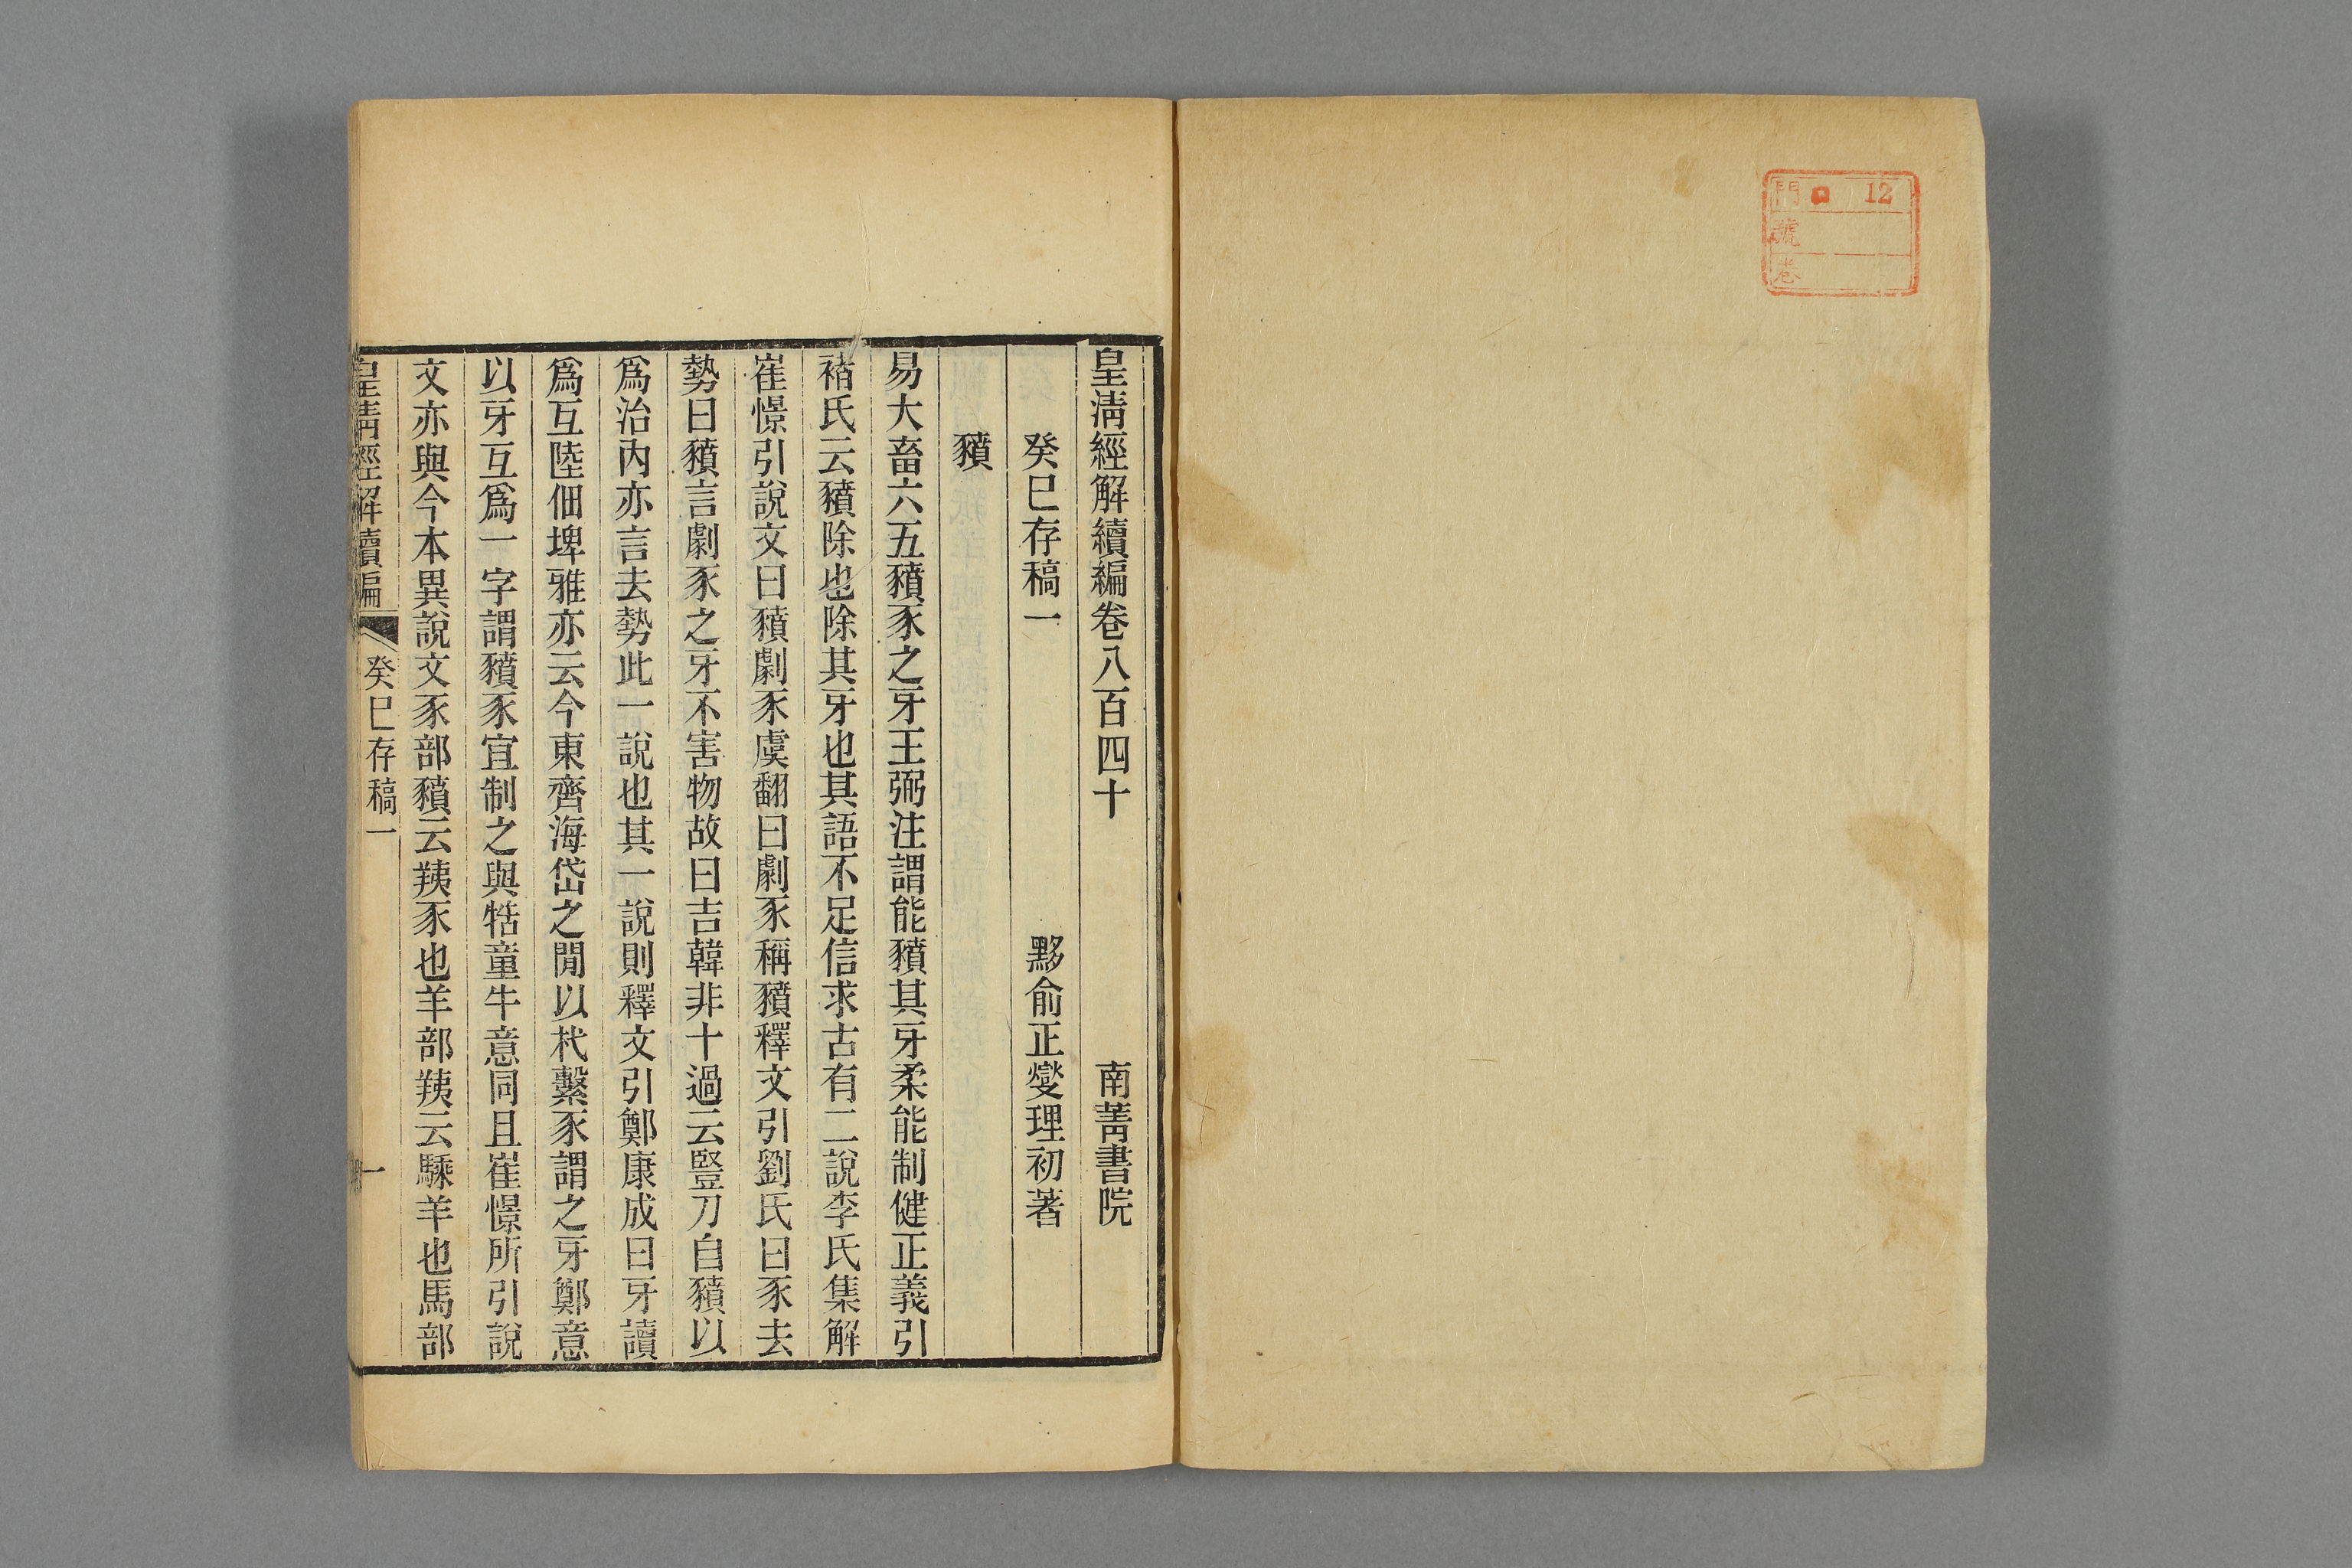 門 12
號
卷
皇清經解續編卷八百四十 南菁書院
癸巳存稿一 黟俞正燮理初著
豶
易大畜六五豶豕之牙王弼注謂能豶其牙柔能制健正義引
褚氏云豶除也除其牙也其語不足信求古有二說李氏集解
崔憬引說文曰豶劇豕虞翻曰劇豕稱豶釋文引劉氏曰豕去
勢曰豶言劇豕之牙不害物故曰吉韓非十過云豎刀自豶以
爲治內亦言去勢此一說也其一說則釋文引鄭康成曰牙讀
爲互陸佃埤雅亦云今東齊海岱之閒以杙繫豕謂之牙鄭意
以牙互爲一字謂豶豕宜制之與牿童牛意同且崔憬所引說
文亦與今本異說文豕部豶云羠豕也羊部羠云騬羊也馬部
皇清經解續編 癸巳存稿一 一